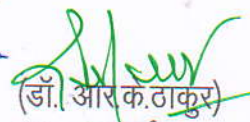 (डॉ. आर.के.ठाकुर)